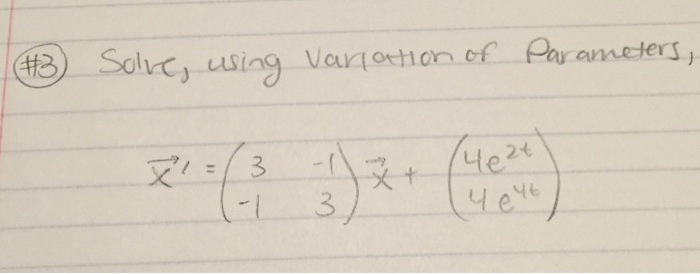 #3 Solve, using Variation of Parameters,
x⃗' = (3 -1; -1 3) x⃗ + (4e^{2t}; 4e^{4t})